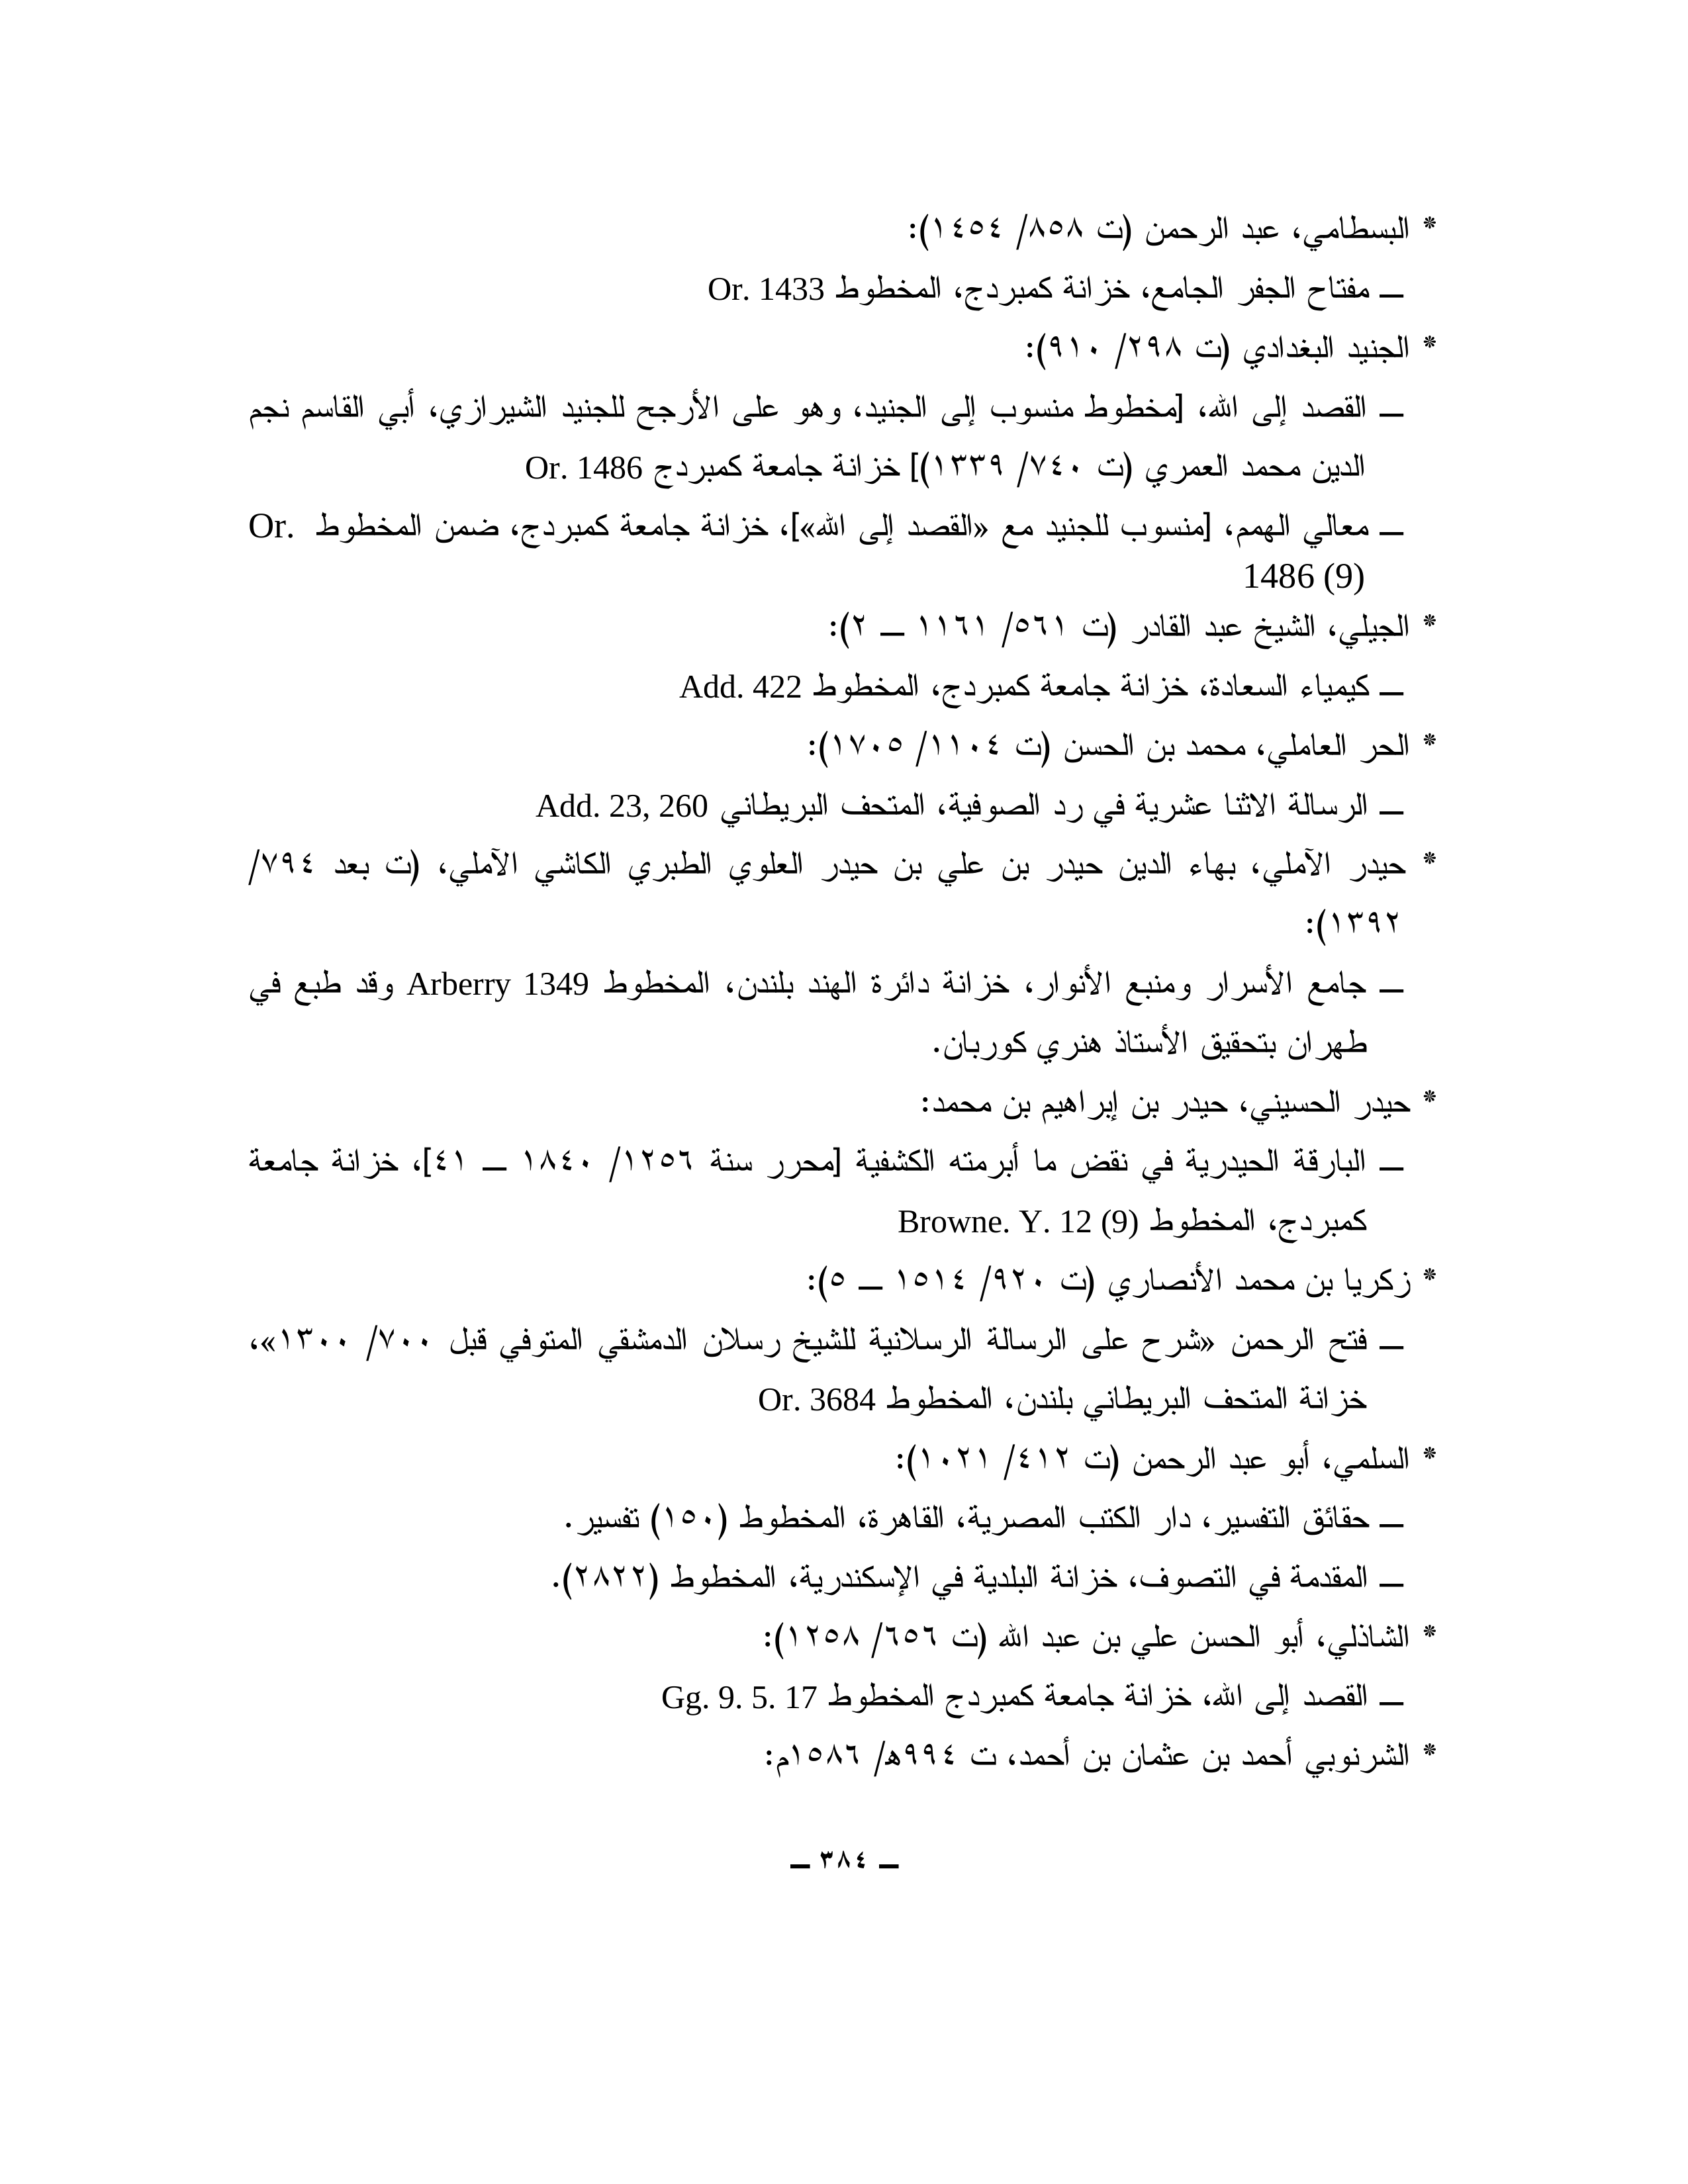 * البسطامي، عبد الرحمن (ت ٨٥٨/ ١٤٥٤):
ــ مفتاح الجفر الجامع، خزانة كمبردج، المخطوط Or. 1433
* الجنيد البغدادي (ت ٢٩٨/ ٩١٠):
ــ القصد إلى الله، [مخطوط منسوب إلى الجنيد، وهو على الأرجح للجنيد الشيرازي، أبي القاسم نجم
الدين محمد العمري (ت ٧٤٠/ ١٣٣٩)] خزانة جامعة كمبردج Or. 1486
ــ معالي الهمم، [منسوب للجنيد مع «القصد إلى الله»]، خزانة جامعة كمبردج، ضمن المخطوط Or.
1486 (9)
* الجيلي، الشيخ عبد القادر (ت ٥٦١/ ١١٦١ ــ ٢):
ــ كيمياء السعادة، خزانة جامعة كمبردج، المخطوط Add. 422
* الحر العاملي، محمد بن الحسن (ت ١١٠٤/ ١٧٠٥):
ــ الرسالة الاثنا عشرية في رد الصوفية، المتحف البريطاني Add. 23, 260
* حيدر الآملي، بهاء الدين حيدر بن علي بن حيدر العلوي الطبري الكاشي الآملي، (ت بعد ٧٩٤/
١٣٩٢):
ــ جامع الأسرار ومنبع الأنوار، خزانة دائرة الهند بلندن، المخطوط Arberry 1349 وقد طبع في
طهران بتحقيق الأستاذ هنري كوربان.
* حيدر الحسيني، حيدر بن إبراهيم بن محمد:
ــ البارقة الحيدرية في نقض ما أبرمته الكشفية [محرر سنة ١٢٥٦/ ١٨٤٠ ــ ٤١]، خزانة جامعة
كمبردج، المخطوط Browne. Y. 12 (9)
* زكريا بن محمد الأنصاري (ت ٩٢٠/ ١٥١٤ ــ ٥):
ــ فتح الرحمن «شرح على الرسالة الرسلانية للشيخ رسلان الدمشقي المتوفي قبل ٧٠٠/ ١٣٠٠»،
خزانة المتحف البريطاني بلندن، المخطوط Or. 3684
* السلمي، أبو عبد الرحمن (ت ٤١٢/ ١٠٢١):
ــ حقائق التفسير، دار الكتب المصرية، القاهرة، المخطوط (١٥٠) تفسير.
ــ المقدمة في التصوف، خزانة البلدية في الإسكندرية، المخطوط (٢٨٢٢).
* الشاذلي، أبو الحسن علي بن عبد الله (ت ٦٥٦/ ١٢٥٨):
ــ القصد إلى الله، خزانة جامعة كمبردج المخطوط Gg. 9. 5. 17
* الشرنوبي أحمد بن عثمان بن أحمد، ت ٩٩٤ه/ ١٥٨٦م:
ــ ٣٨٤ ــ